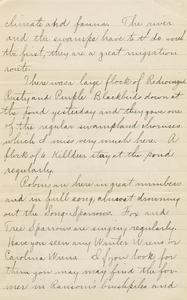 climate and fauna. The river
and the swamps have to do with
the first, they are a great migration
route.
There was a large flock of Redwinged
Rusty and Purple Blackbirds down at
the pond yesterday and they gave one
of the regular swampland choruses
which I miss very much here. A
flock of 6 Killdeer stay at the pond
regularly.
Robins are here in great numbers
and in full song, almost drowning
out the Song Sparrows. Fox and
Tree Sparrows are singing regularly.
Have you seen any Winter Wrens or
Carolina Wrens. If you look for
them you may find the for-
mer in Ransom's brushpiles and